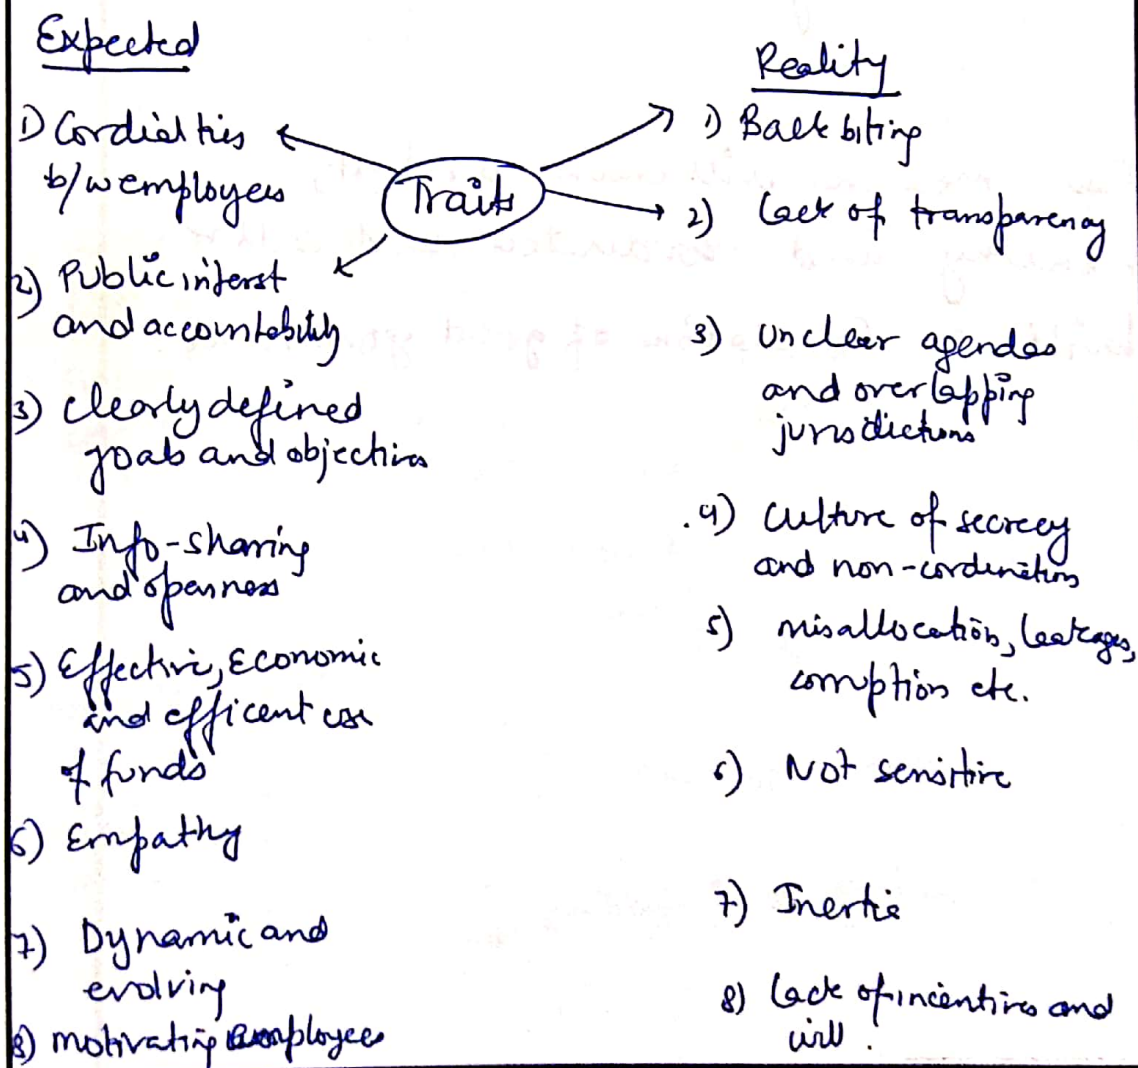 Expected
1) Cordial ties
b/w employees
2) Public interst
and accountability
3) Clearly defined
goals and objectives
4) Info-sharing
and openness
5) Effective, Economic
and efficent use
of funds
6) Empathy
7) Dynamic and
evolving
8) motivating employees
Traits
Reality
1) Back biting
2) Lack of transparency
3) Unclear agendas
and overlapping
jurisdictions
4) Culture of secrecy
and non-cordination
5) misallocation, leakages,
corruption etc.
6) Not sensitive
7) Inertia
8) Lack of incentives and
will.